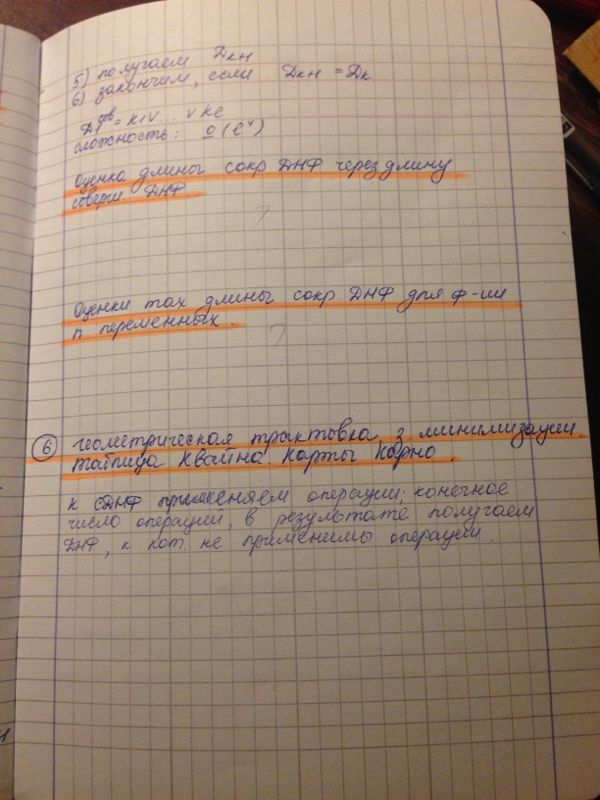 5) получаем Dкн
6) закончим, если Dкн = Dк
= K1 ∨ ... ∨ Ke
сложность: o(e⁴)
Оценка длины сокр ДНФ через длину
соверш ДНФ
?
Оценки max длины сокр ДНФ для ф-ии
n переменных.
?
6 Геометрическая трактовка з. минимизации.
Таблица Квайна. Карты Карно.
К СДНФ применяем операции; конечное
число операций, в результате получаем
ДНФ, к кот. не применимы операции.